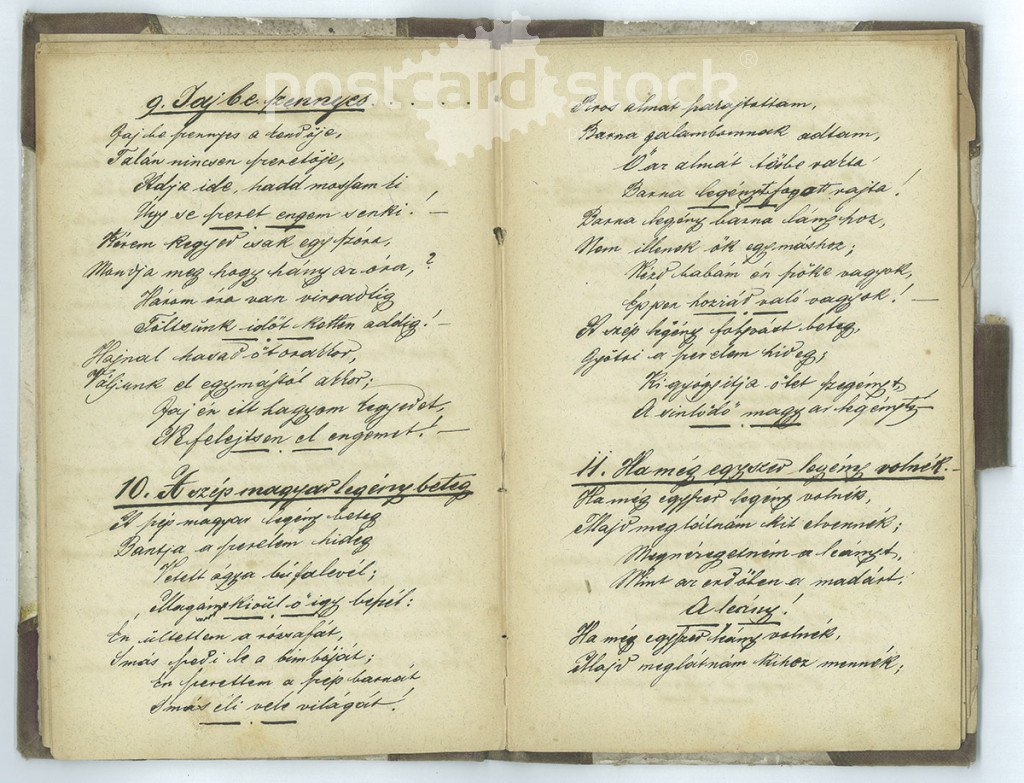 postcard stock®
9. Jaj be szennyes . . . . . .
Jaj be szennyes a kendője,
Talán nincsen szeretője,
Adja ide, hadd mossam ki
Úgy se szeret engem senki! –
Kérem kegyed csak egy szóra,
Mondja meg hogy hány az óra, ?
Három óra van virradtig
Töltsünk időt ketten addig! –
Hajnal hasad öt órakkor,
Váljunk el egymástól akkor;
Jaj én itt hagyom kegyedet,
Ne felejtsen el engemet! –
10. A szép magyar legény beteg
A szép magyar legény beteg
Bántja a szerelem hideg
Vetett ágya
Magánkivül ő igy beszél:
Én ültettem a rózsafát,
S más szedi le a bimbóját;
Én szerettem a szép barnát
S más éli vele világát!
Piros almát
Barna galambomnak adtam,
Ő az almát zsebe rakta
Barna legényt fogott rajta!
Barna legény barna lányhoz,
Nem illenek ők egymáshoz;
Nézd babám én szőke vagyok,
Éppen hozzád való vagyok! –
A szép legény beteg,
Gyötri a szerelem hideg;
Ki gyógyitja őtet szegényt,
A sinlődő magyar legényt;
11. Ha még egyszer legény volnék. –
Ha még egyszer legény volnék,
Majd meglátnám kit elvennék;
Megnézegetném a leányt,
Mint az erdőben a madárt;
A leány!
Ha még egyszer leány volnék,
Majd meglátnám kihez mennék;